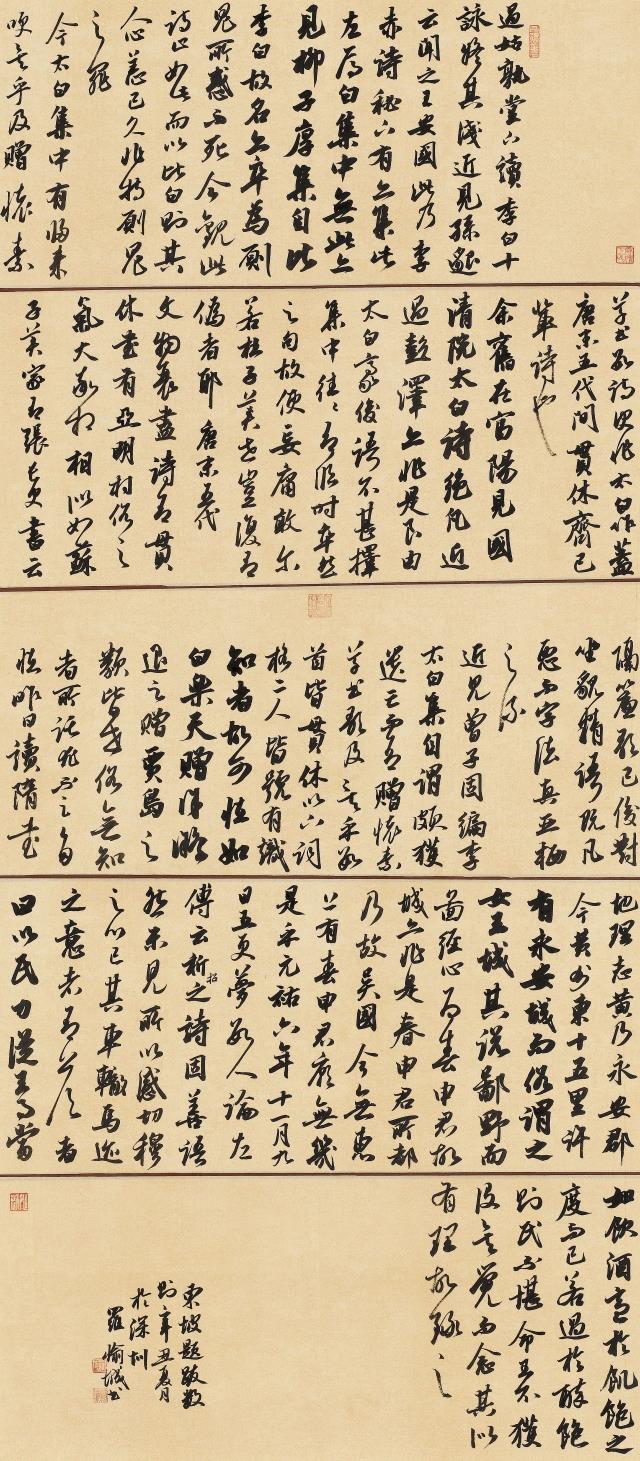 過姑孰堂下讀李白十
詠疑其淺近見孫邈
云聞之王安國此乃李
赤詩秘閣有赤集此
在焉白集中無此赤
見柳子厚集自比
李白故名赤卒為厠
鬼所惑而死今觀此
詩止如此而以比白則其
心恙已久非特厠鬼
之罪
今太白集中有歸來
咲矣乎及贈懷素
草書數詩決非太白作蓋
唐末五代間貫休齊己
輩詩也
余舊在富陽見國
清院太白詩絕凡近
過彭澤亦非是良由
太白豪俊語不甚擇
集中往往有臨時率然
之句故使妄庸敢爾
若杜子美世豈復有
偽者耶唐末五代
文物衰盡詩有貫
休書有亞栖村俗之
氣大率相似如蘇
子美家有張長史書云
隔簾歌已俊對
坐貌彌精語既凡
惡而字法真亞栖
之流
近見曾子固編李
太白集自謂頗獲
遺亡而有贈懷素
草書歌及笑矣乎數
首皆貫休以下詞
格二人皆號有識
知者故可怪如
白樂天贈徐凝
退之贈賈島之
類皆世俗無知
者所託不足多
怪昨日讀隋書
地理志黄乃永安郡
今黄州東十五里許
有永安城而俗謂之
女王城其說鄙野而
圖經以為春申君故
城亦非是春申君所都
乃故吳國今無惠
上有春申君廟庶幾
是乎元祐六年十一月九
日五更夢數人論左
傳云祈招之詩固善語
然未見所以感切穆
之心已其車轍馬迹
之意者有答者
曰以民力從王事當
如飲酒適於飢飽之
度而已若過於醉飽
則民不堪命王不獲
沒矣覺而念其似
有理故録之
東坡題跋數
則辛丑夏月
於深圳
羅愉城書